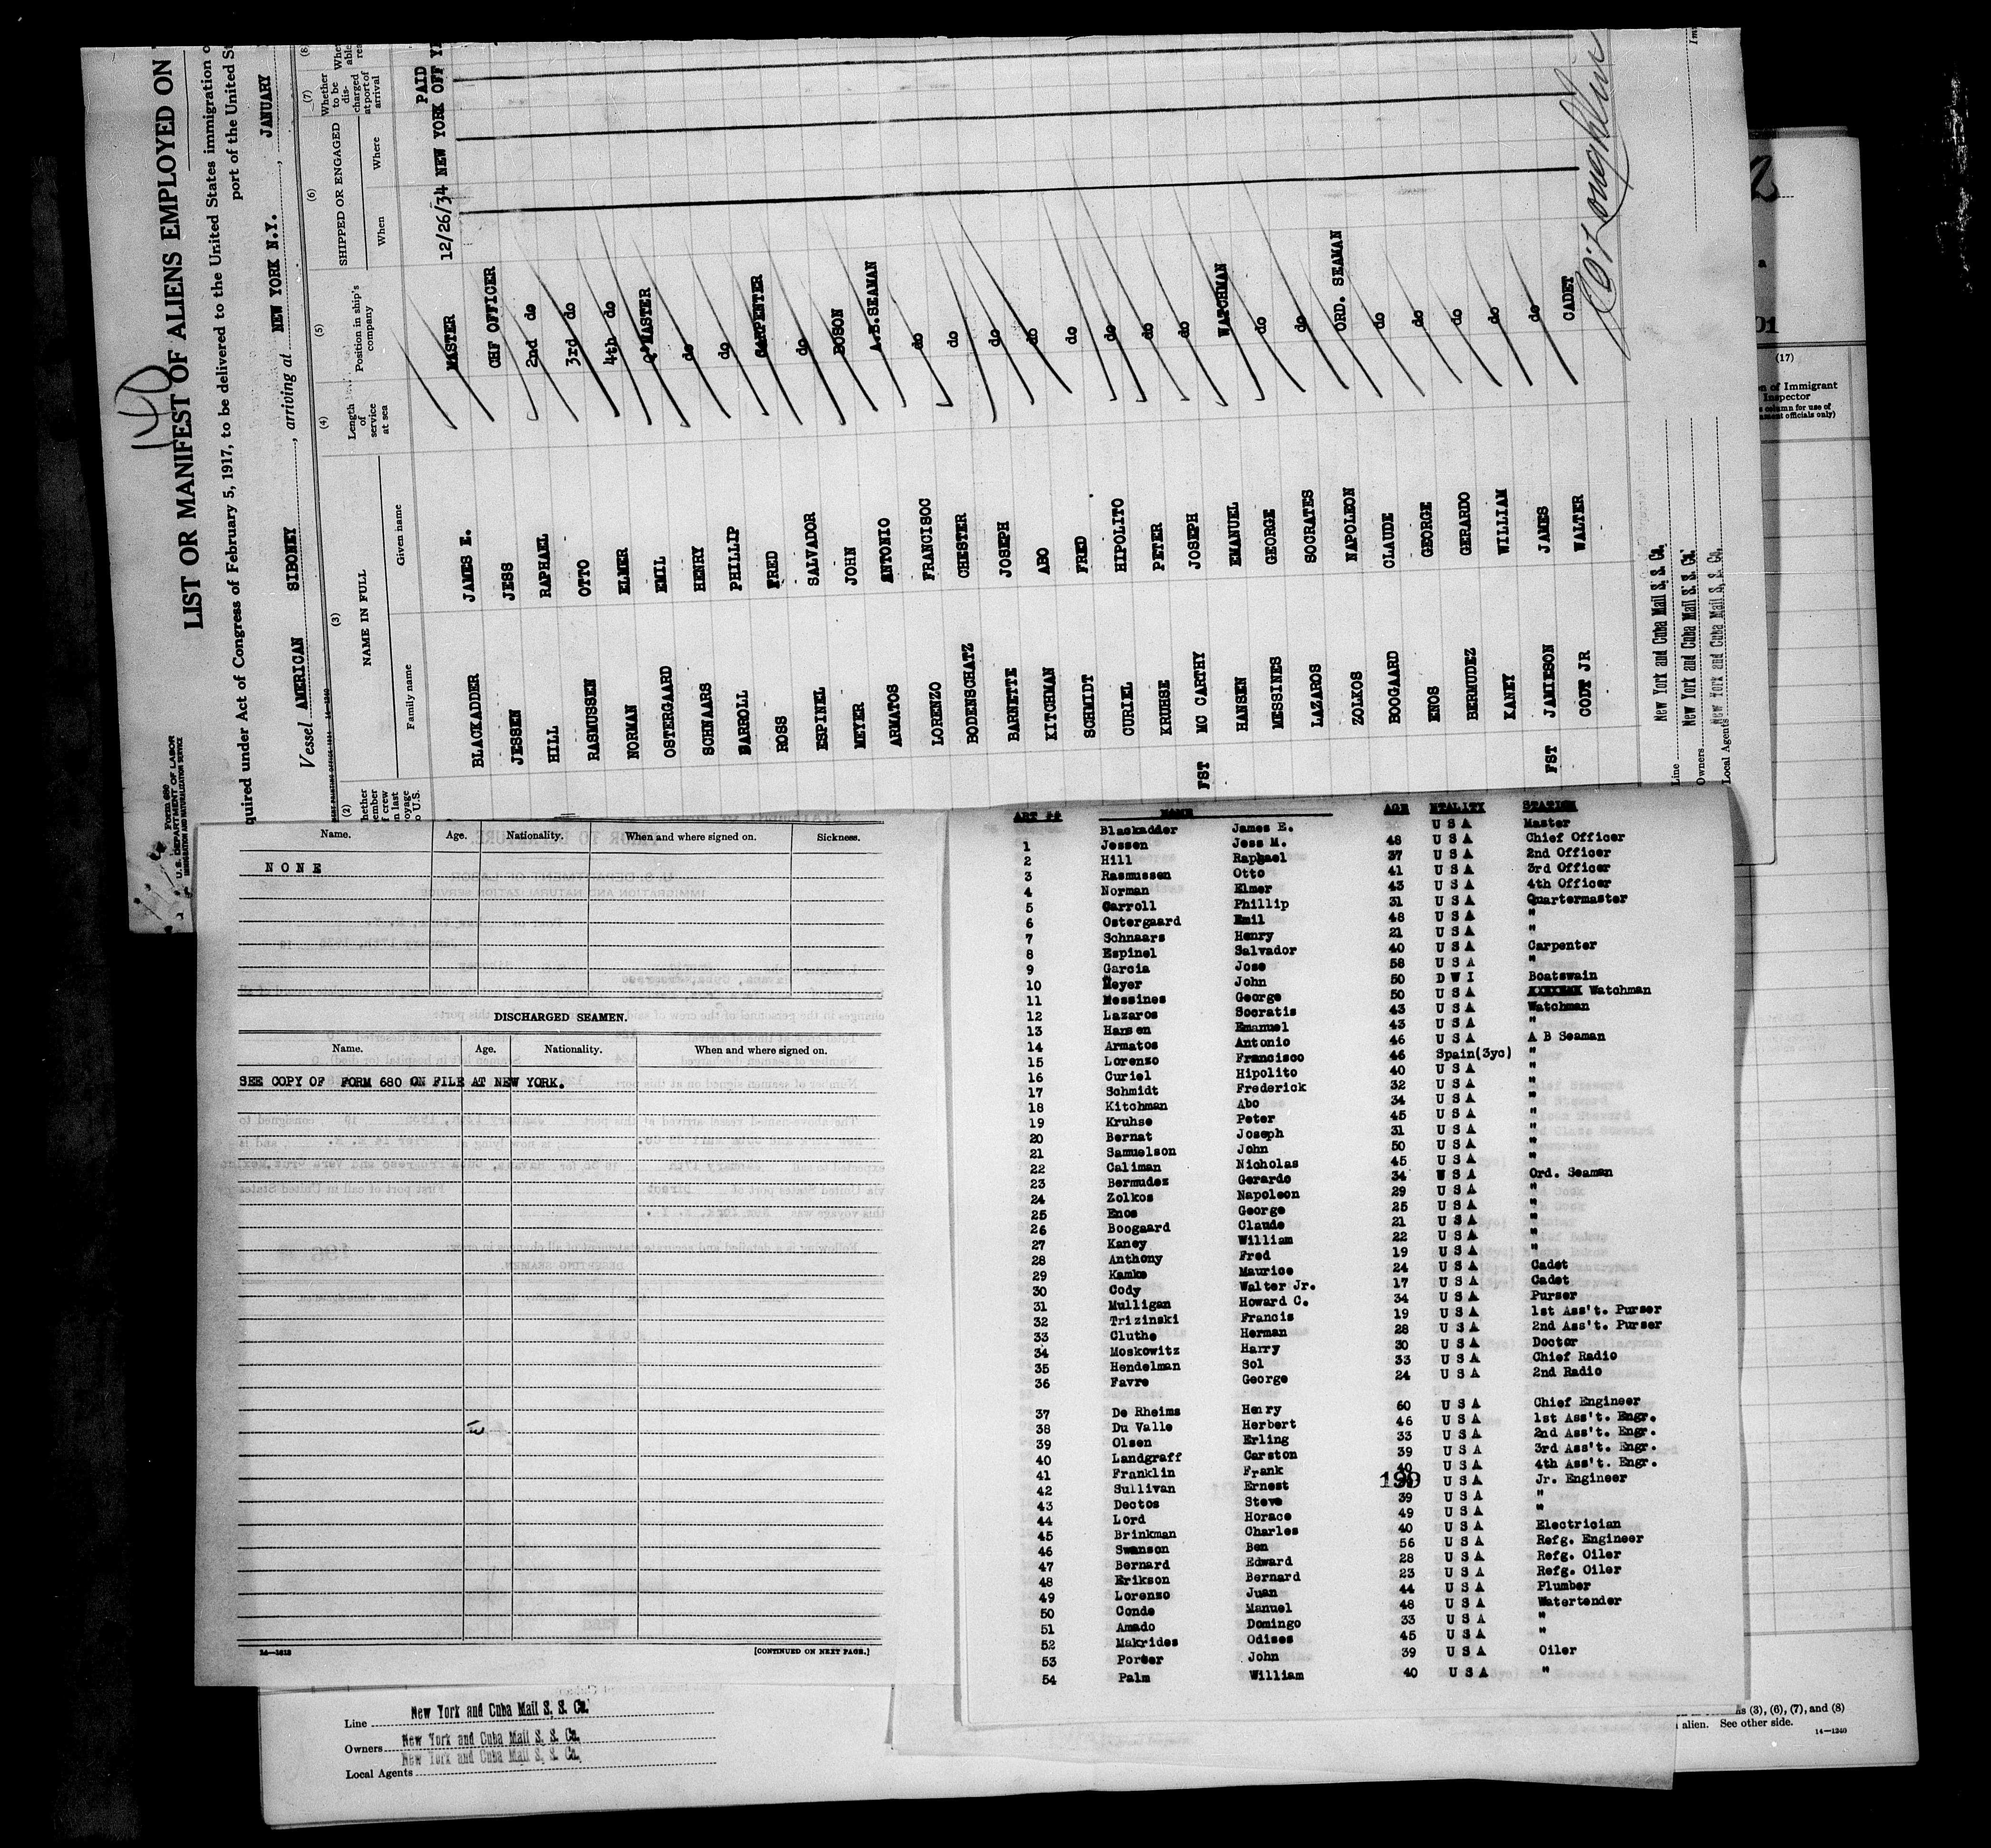 140
Form 680
U.S. DEPARTMENT OF LABOR
IMMIGRATION AND NATURALIZATION SERVICE
LIST OR MANIFEST OF ALIENS EMPLOYED ON
quired under Act of Congress of February 5, 1917, to be delivered to the United States immigration
port of the United
Vessel AMERICAN SIBONEY, arriving at NEW YORK N.Y., JANUARY
(2) (3) (4) (5) (6) (7) (8)
NAME IN FULL
Family name Given name
Length of service at sea
Position in ship's company
SHIPPED OR ENGAGED
When Where
Whether to be discharged at port of arrival
PAID
12/26/34 NEW YORK OFF
BLACKADDER JAMES E. MASTER
JESSEN JESS CHF OFFICER
HILL RAPHAEL 2nd do
RASMUSSEN OTTO 3rd do
NORMAN ELMER 4th do
OSTERGAARD EMIL Q'MASTER
SCHNAARS HENRY do
BARROLL PHILLIP do
ROSS FRED CARPENTER
ESPINEL SALVADOR do
MEYER JOHN BOSON
ARMATOS ANTONIO A.B.SEAMAN
LORENZO FRANCISOC do
BODENSCHATZ CHESTER do
BARNETTE JOSEPH do
KITCHMAN ABO do
SCHMIDT FRED do
CURIEL HIPOLITO do
KRUHSE PETER do
FST MC CARTHY JOSEPH do
HANSEN EMANUEL WATCHMAN
MESSINES GEORGE do
LAZAROS SOCRATES do
ZOLKOS NAPOLEON ORD. SEAMAN
BOOGAARD CLAUDE do
ENOS GEORGE do
BERMUDEZ GERARDO do
KANEY WILLIAM do
FST JAMIESON JAMES do
CODT JR WALTER CADET
Line New York and Cuba Mail S. S. Co.
Owners New York and Cuba Mail S. S. Co.
Local Agents New York and Cuba Mail S. S. Co.
2
01
(17)
of Immigrant
Inspector
column for use of
officials only)
Name. Age. Nationality. When and where signed on. Sickness.
N O N E
DISCHARGED SEAMEN.
Name. Age. Nationality. When and where signed on.
SEE COPY OF FORM 680 ON FILE AT NEW YORK.
[CONTINUED ON NEXT PAGE.]
ART ## NAME AGE NTALITY STATION
Blackadder James E. U S A Master
1 Jessen Jess M. 48 U S A Chief Officer
2 Hill Raphael 37 U S A 2nd Officer
3 Rasmussen Otto 41 U S A 3rd Officer
4 Norman Elmer 43 U S A 4th Officer
5 Carroll Phillip 31 U S A Quartermaster
6 Ostergaard Emil 48 U S A "
7 Schnaars Henry 21 U S A "
8 Espinel Salvador 40 U S A Carpenter
9 Garcia Jose 58 U S A "
10 Meyer John 50 D W I Boatswain
11 Messines George 50 U S A Watchman
12 Lazaros Socratis 43 U S A Watchman
13 Hansen Emanuel 43 U S A "
14 Armatos Antonio 46 U S A A B Seaman
15 Lorenzo Francisco 46 Spain(3yc) "
16 Curiel Hipolito 40 U S A "
17 Schmidt Frederick 32 U S A "
18 Kitchman Abo 34 U S A "
19 Kruhse Peter 45 U S A "
20 Bernat Joseph 31 U S A "
21 Samuelson John 50 U S A "
22 Caliman Nicholas 45 U S A "
23 Bermudez Gerardo 34 U S A Ord. Seaman
24 Zolkos Napoleon 29 U S A "
25 Enos George 25 U S A "
26 Boogaard Claude 21 U S A "
27 Kaney William 22 U S A "
28 Anthony Fred 19 U S A "
29 Kamke Maurice 24 U S A Cadet
30 Cody Walter Jr. 17 U S A Cadet
31 Mulligan Howard C. 34 U S A Purser
32 Trizinski Francis 19 U S A 1st Ass't. Purser
33 Cluthe Herman 28 U S A 2nd Ass't. Purser
34 Moskowitz Harry 30 U S A Doctor
35 Hendelman Sol 33 U S A Chief Radio
36 Favre George 24 U S A 2nd Radio
37 De Rheims Henry 60 U S A Chief Engineer
38 Du Valle Herbert 46 U S A 1st Ass't. Engr.
39 Olsen Erling 33 U S A 2nd Ass't. Engr.
40 Landgraff Carston 39 U S A 3rd Ass't. Engr.
41 Franklin Frank 40 U S A 4th Ass't. Engr.
42 Sullivan Ernest 199 U S A Jr. Engineer
43 Dectos Steve 39 U S A "
44 Lord Horace 49 U S A "
45 Brinkman Charles 40 U S A Electrician
46 Swanson Ben 56 U S A Refg. Engineer
47 Bernard Edward 28 U S A Refg. Oiler
48 Erikson Bernard 23 U S A Refg. Oiler
49 Lorenzo Juan 44 U S A Plumber
50 Conde Manuel 48 U S A Watertender
51 Amado Domingo 33 U S A "
52 Makrides Odises 45 U S A "
53 Porter John 39 U S A Oiler
54 Palm William 40 U S A "
Line New York and Cuba Mail S. S. Co.
Owners New York and Cuba Mail S. S. Co.
New York and Cuba Mail S. S. Co.
Local Agents
(3), (6), (7), and (8)
alien. See other side.
14—1240